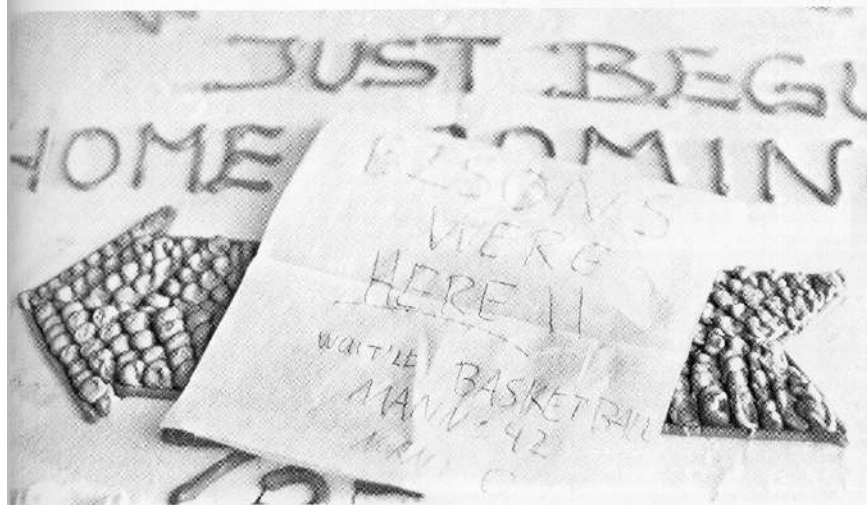 JUST BEGU
HOME COMIN
BZSONS
WERE
HERE !!
WAIT'LL BASKETBALL
MANN. 42